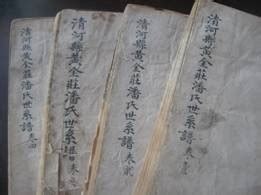 清河縣黃全莊潘氏世系譜卷四
清河縣黃全莊潘氏世系譜卷
清河縣黃全莊潘氏世系譜卷貳
清河縣黃全莊潘氏世系譜卷壹